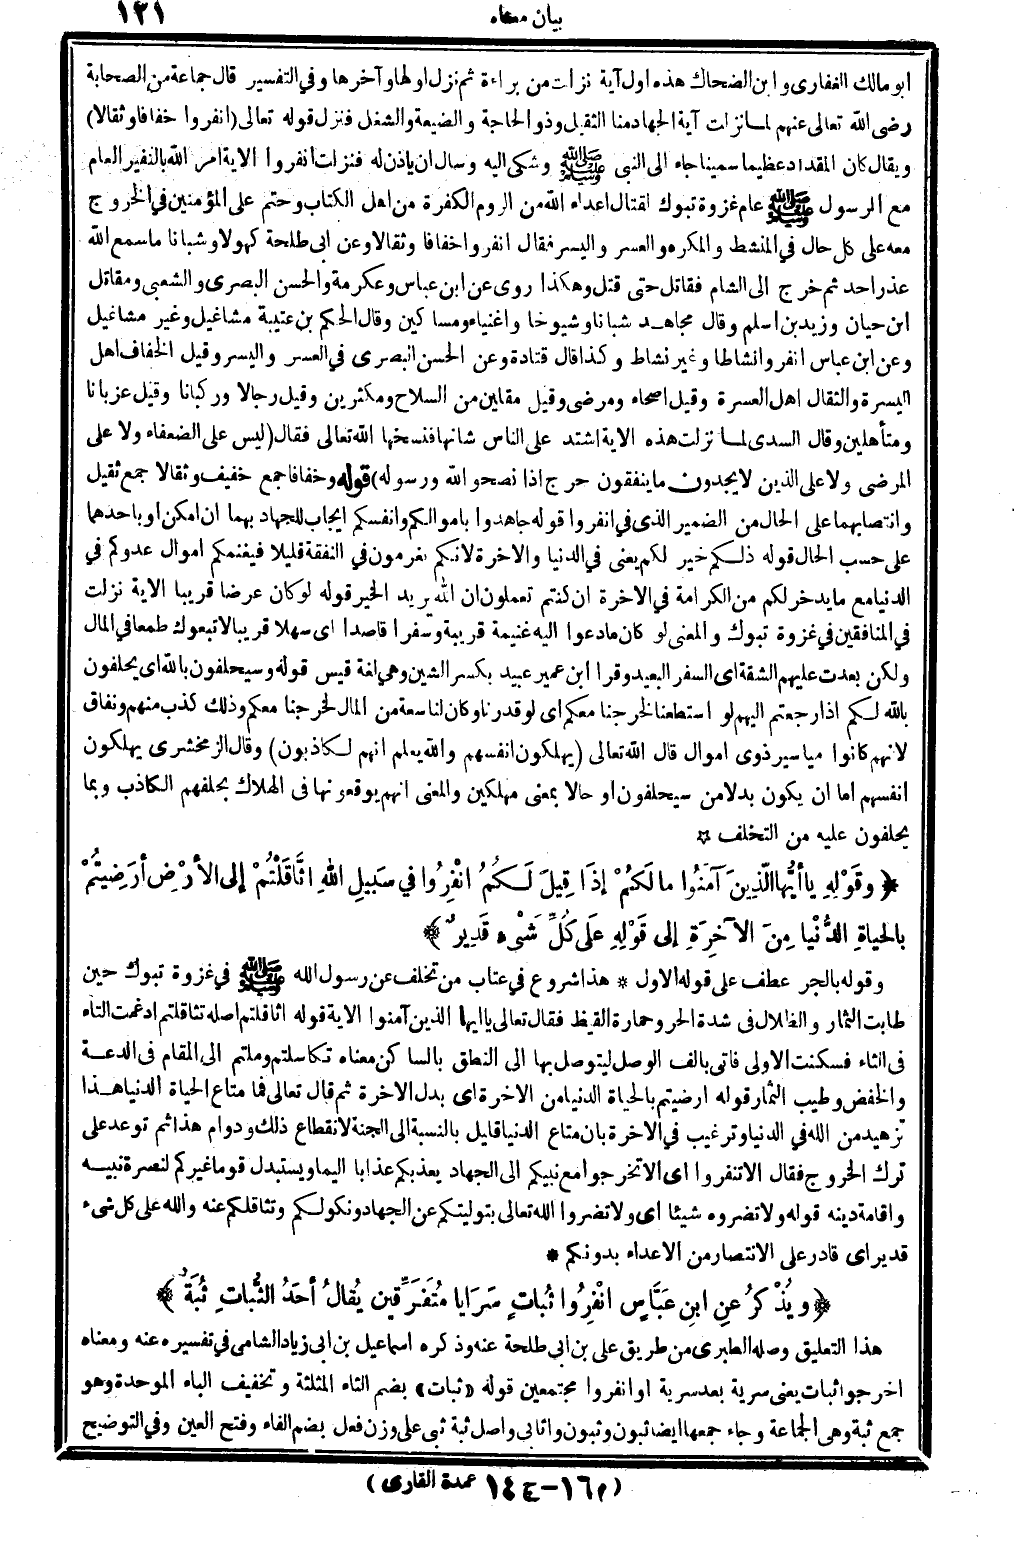 بيان معناه ١٢١
ابو مالك الغفارى و ابن الضحاك هذه اول آية نزلت من براءة ثم نزل اولها وآخرها وفي التفسير قال جماعة من الصحابة
رضى الله تعالى عنهم لما نزلت آية الجهاد منا الثقيل وذو الحاجة والضيعة والشغل فنزل قوله تعالى (انفروا خفافا وثقالا)
ويقال كان المقداد عظيما سمينا جاء الى النبى ﷺ وشكى اليه وسال ان ياذن له فنزلت انفروا الاية امر الله بالنفير العام
مع الرسول ﷺ عام غزوة تبوك لقتال اعداء الله من الروم الكفرة من اهل الكتاب وحتم على المؤمنين في الخروج
معه على كل حال في المنشط والمكره والعسر واليسر فقال انفروا خفافا وثقالا وعن ابى طلحة كهولا وشبانا ما سمع الله
عذر احد ثم خرج الى الشام فقاتل حتى قتل وهكذا روى عن ابن عباس وعكرمة والحسن البصرى والشعبى ومقاتل
ابن حيان وزيد بن اسلم وقال مجاهد شبانا وشيوخا واغنياء ومساكين وقال الحكم بن عتيبة مشاغيل وغير مشاغيل
وعن ابن عباس انفروا نشاطا وغير نشاط وكذا قال قتادة وعن الحسن البصرى في العسر واليسر وقيل الخفاف اهل
اليسرة والثقال اهل العسرة وقيل اصحاء ومرضى وقيل مقلين من السلاح ومكثرين وقيل رجالا وركبانا وقيل عزبانا
ومتأهلين وقال السدى لما نزلت هذه الاية اشتد على الناس شانها فنسخها الله تعالى فقال (ليس على الضعفاء ولا على
المرضى ولا على الذين لا يجدون ما ينفقون حرج اذا نصحوا لله ورسوله) قوله وخفافا جمع خفيف وثقالا جمع ثقيل
وانتصابهما على الحال من الضمير الذى في انفروا قوله جاهدوا باموالكم وانفسكم ايجاب للجهاد بهما ان امكن او باحدهما
على حسب الحال قوله ذلكم خير لكم يعنى في الدنيا والاخرة لانكم تغرمون في النفقة قليلا فيغنمكم اموال عدوكم في
الدنيا مع ما يدخر لكم من الكرامة في الاخرة ان كنتم تعملون ان الله يريد الخير قوله لو كان عرضا قريبا الاية نزلت
في المنافقين في غزوة تبوك والمعنى لو كان ما دعوا اليه غنيمة قريبة وسفرا قاصدا اى سهلا قريبا لاتبعوك طمعا في المال
ولكن بعدت عليهم الشقة اى السفر البعيد وقرا ابن عمير عبيد بكسر الشين وهي لغة قيس قوله وسيحلفون بالله اى يحلفون
بالله لكم اذا رجعتم اليهم لو استطعنا لخرجنا معكم اى لو قدرنا وكان لنا سعة من المال لخرجنا معكم وذلك كذب منهم ونفاق
لانهم كانوا مياسير ذوى اموال قال الله تعالى (يهلكون انفسهم والله يعلم انهم لكاذبون) وقال الزمخشرى يهلكون
انفسهم اما ان يكون بدلا من سيحلفون او حالا بمعنى مهلكين والمعنى انهم يوقعونها فى الهلاك بحلفهم الكاذب وبما
يحلفون عليه من التخلف ✩
﴿ وَقَوْلِهِ يَا أَيُّهَا الَّذِينَ آمَنُوا مَا لَكُمْ إِذَا قِيلَ لَكُمُ انْفِرُوا فِي سَبِيلِ اللهِ اثَّاقَلْتُمْ إِلَى الأَرْضِ أَرَضِيتُمْ
بِالحَيَاةِ الدُّنْيَا مِنَ الآخِرَةِ إِلَى قَوْلِهِ عَلَى كُلِّ شَىْءٍ قَدِيرٌ ﴾
وقوله بالجر عطف على قوله الاول * هذا شروع في عتاب من تخلف عن رسول الله ﷺ في غزوة تبوك حين
طابت الثمار والظلال فى شدة الحر وحمارة القيظ فقال تعالى يا ايها الذين آمنوا الاية قوله اثاقلتم اصله تثاقلتم ادغمت التاء
فى الثاء فسكنت الاولى فاتى بالف الوصل ليتوصل بها الى النطق بالساكن معناه تكاسلتم وملتم الى المقام فى الدعة
والخفض وطيب الثمار قوله ارضيتم بالحياة الدنيا من الاخرة اى بدل الاخرة ثم قال تعالى فما متاع الحياة الدنيا هذا
تزهيد من الله في الدنيا وترغيب في الاخرة بان متاع الدنيا قليل بالنسبة الى الجنة لانقطاع ذلك ودوام هذا ثم توعد على
ترك الخروج فقال الا تنفروا اى الا تخرجوا مع نبيكم الى الجهاد يعذبكم عذابا اليما ويستبدل قوما غيركم لنصرة نبيه
واقامة دينه قوله ولا تضروه شيئا اى ولا تضروا الله تعالى بتوليتكم عن الجهاد ونكولكم وتثاقلكم عنه والله على كل شىء
قدير اى قادر على الانتصار من الاعداء بدونكم *
﴿ وَيُذْكَرُ عَنِ ابنِ عَبَّاسٍ انْفِرُوا ثُبَاتٍ سَرَايَا مُتَفَرِّقِين يُقَالُ أَحَدُ الثُّبَاتِ ثُبَةٌ ﴾
هذا التعليق وصله الطبرى من طريق على بن ابى طلحة عنه وذكره اسماعيل بن ابى زياد الشامى في تفسيره عنه ومعناه
اخرجوا ثبات يعنى سرية بعد سرية او انفروا مجتمعين قوله «ثبات» بضم الثاء المثلثة وتخفيف الباء الموحدة وهو
جمع ثبة وهى الجماعة وجاء جمعها ايضا ثبون وثبون واثابى واصل ثبة ثبى على وزن فعل بضم الفاء وفتح العين وفي التوضيح
(م ١٦ - ج ١٤ عمدة القارى)